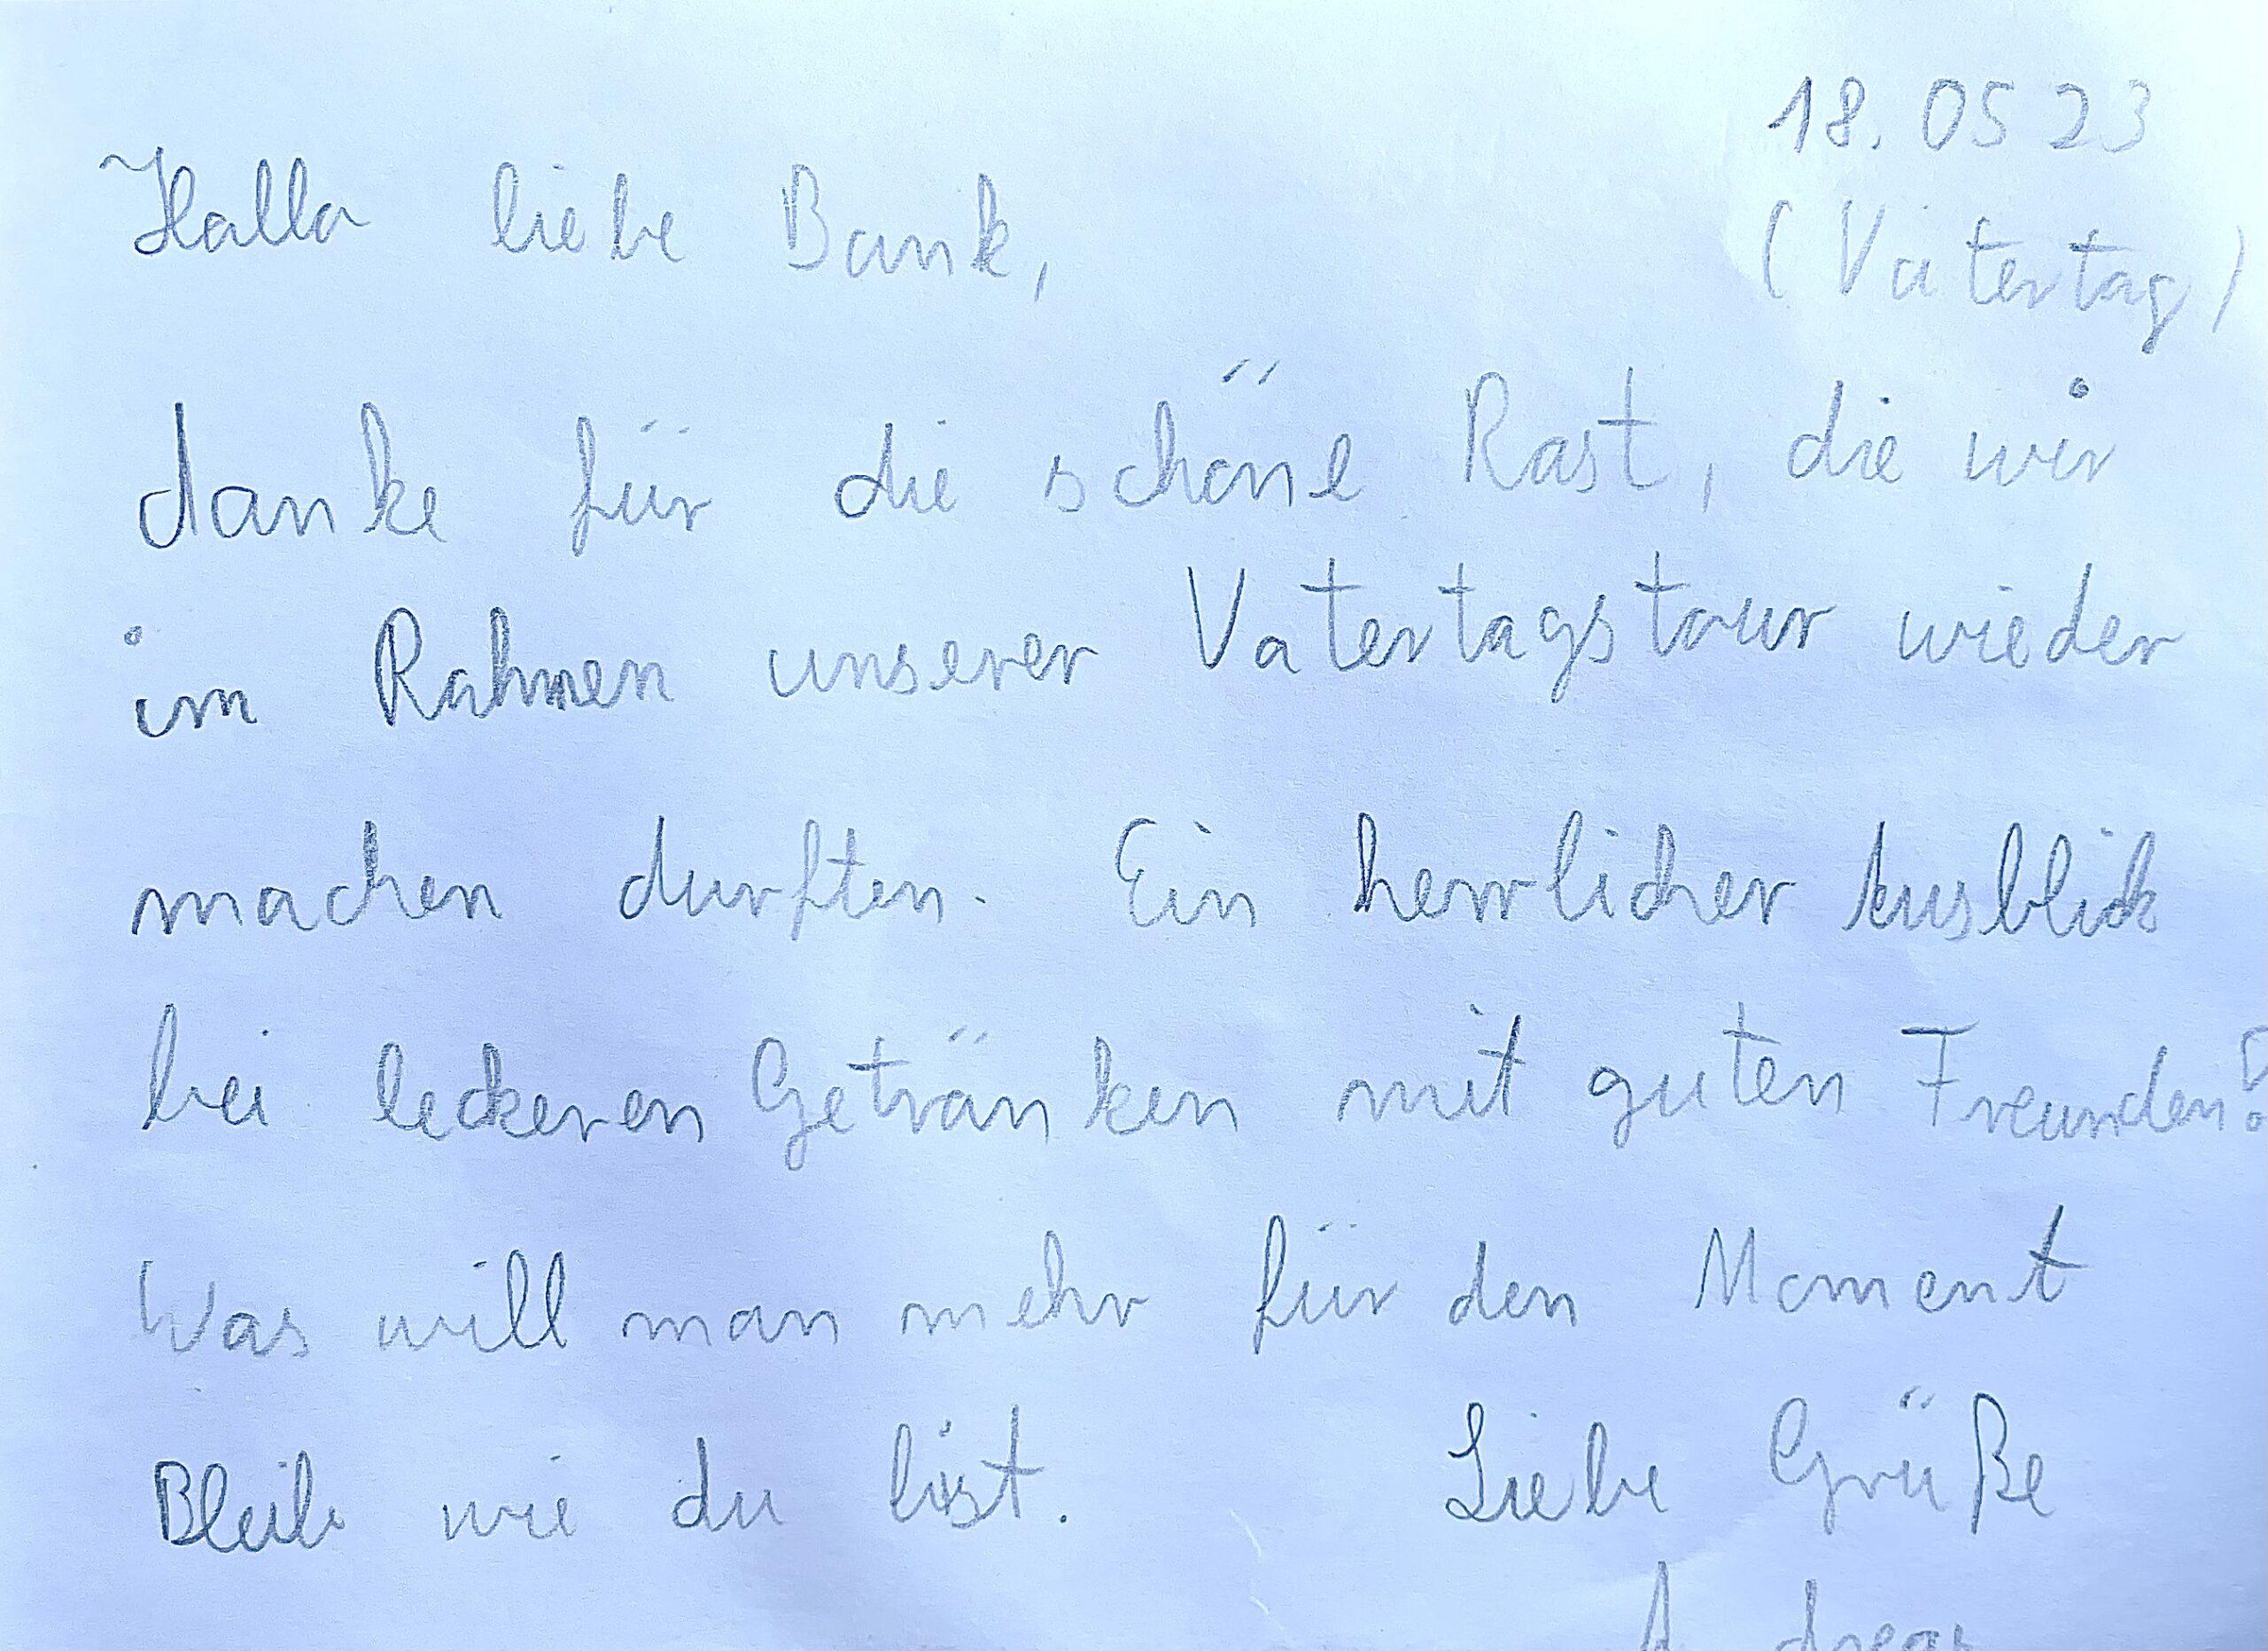 18.05 23
Hallo liebe Bank,
(Vatertag)
danke für die schöne Rast, die wir
im Rahmen unserer Vatertagstour wieder
machen durften. Ein herrlicher Ausblick
bei leckeren Getränken mit guten Freunden!
Was will man mehr für den Moment
Bleib wie du bist. Liebe Grüße
Andreas